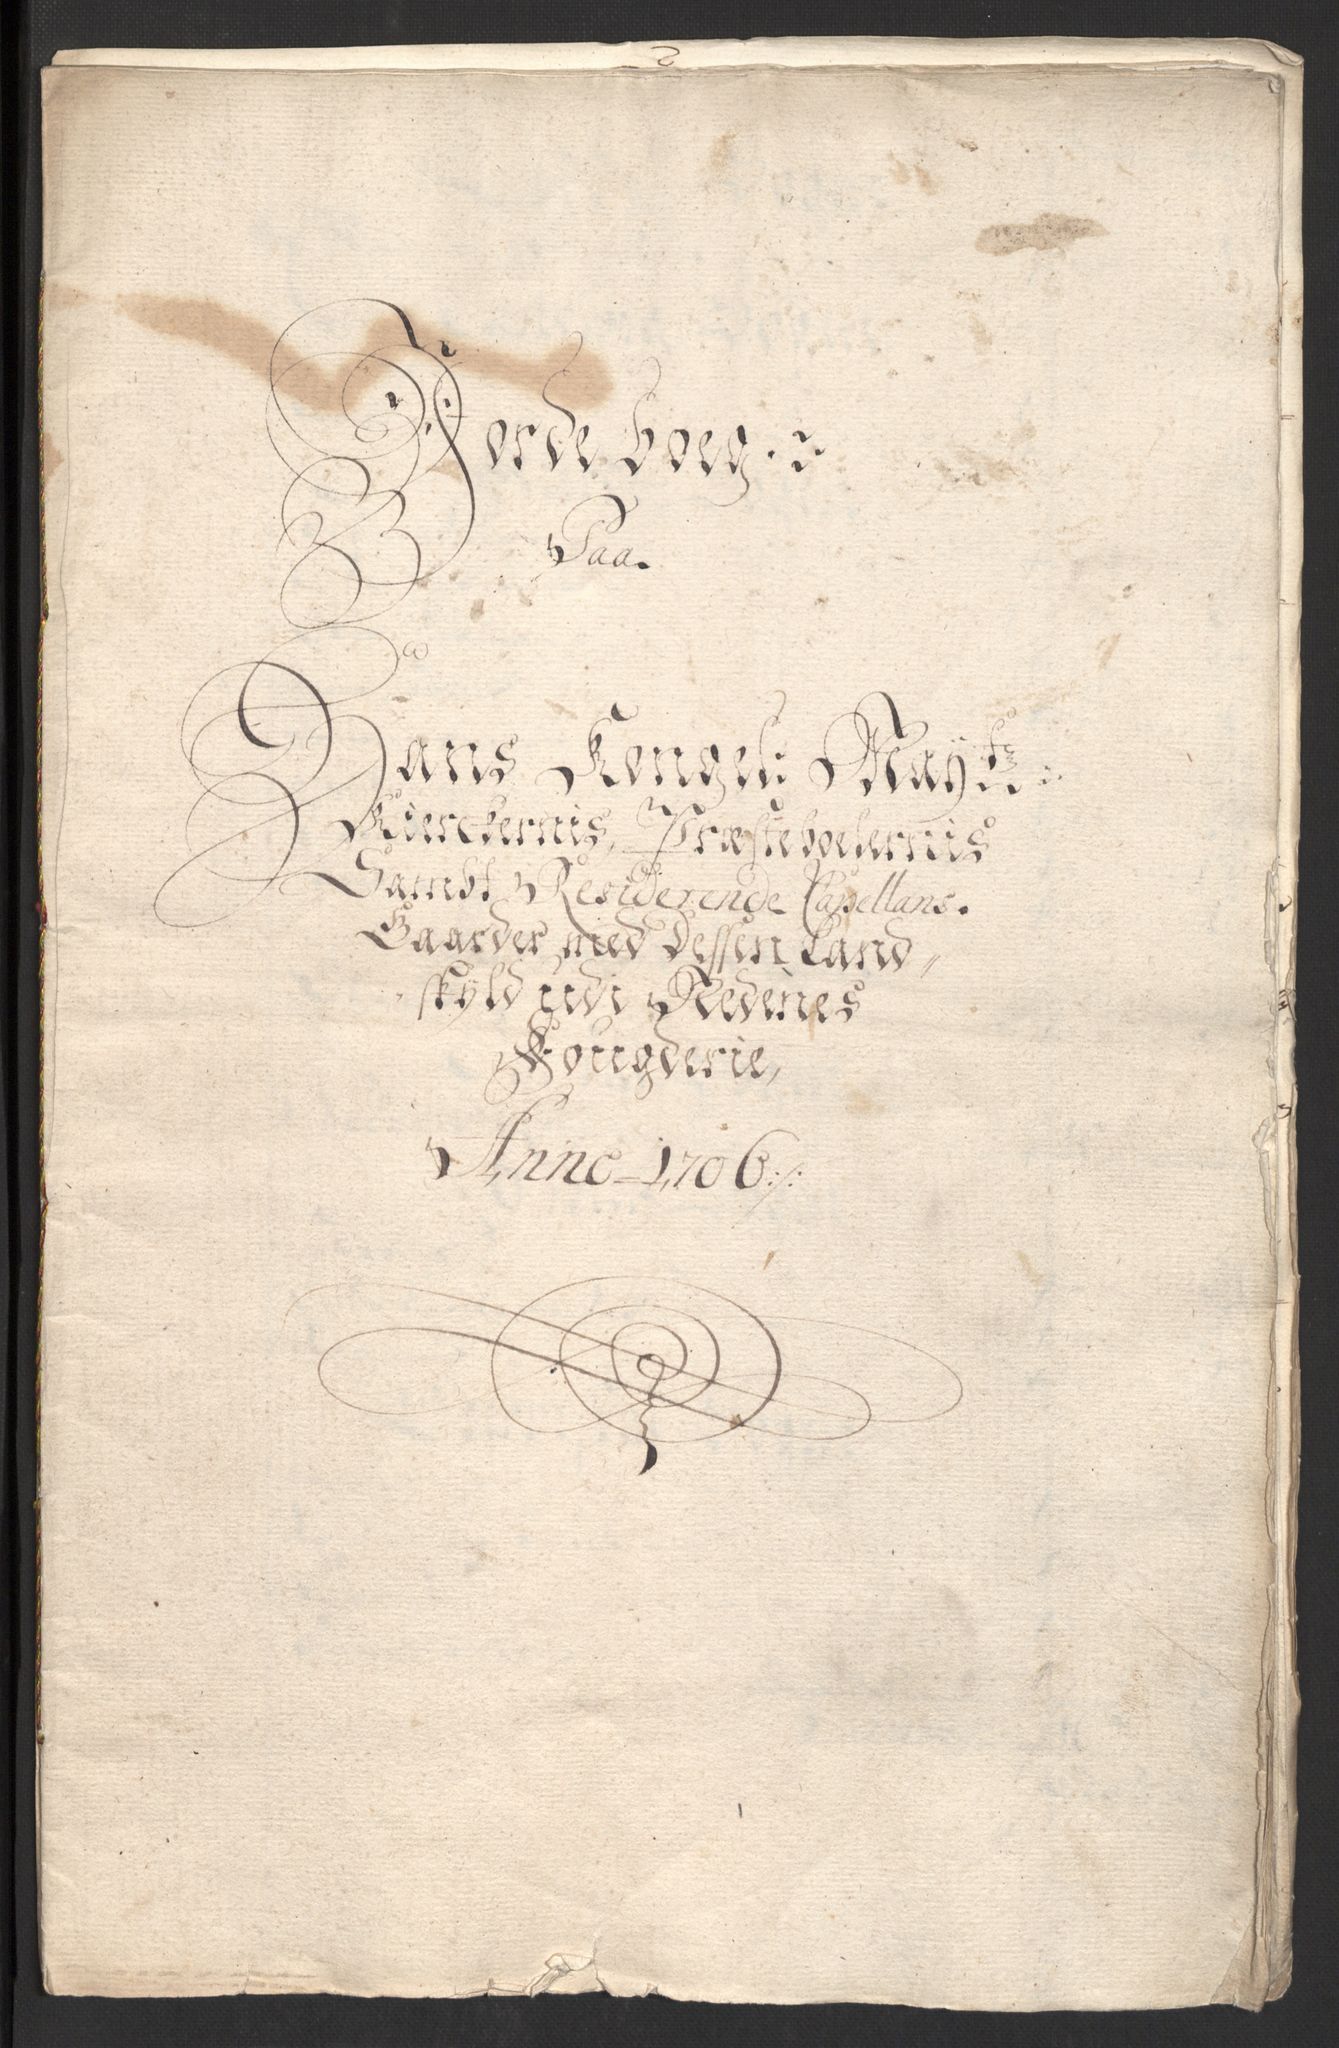 Jorde boeg
Paa.
Hans Kongel: Mayts:
Kierckernis, Præsteboelernis
Sambt Residerende Capellans.
Gaarder med Dessen Land,,
skyld udi Nedenes
Fougderie,
Anno 1706